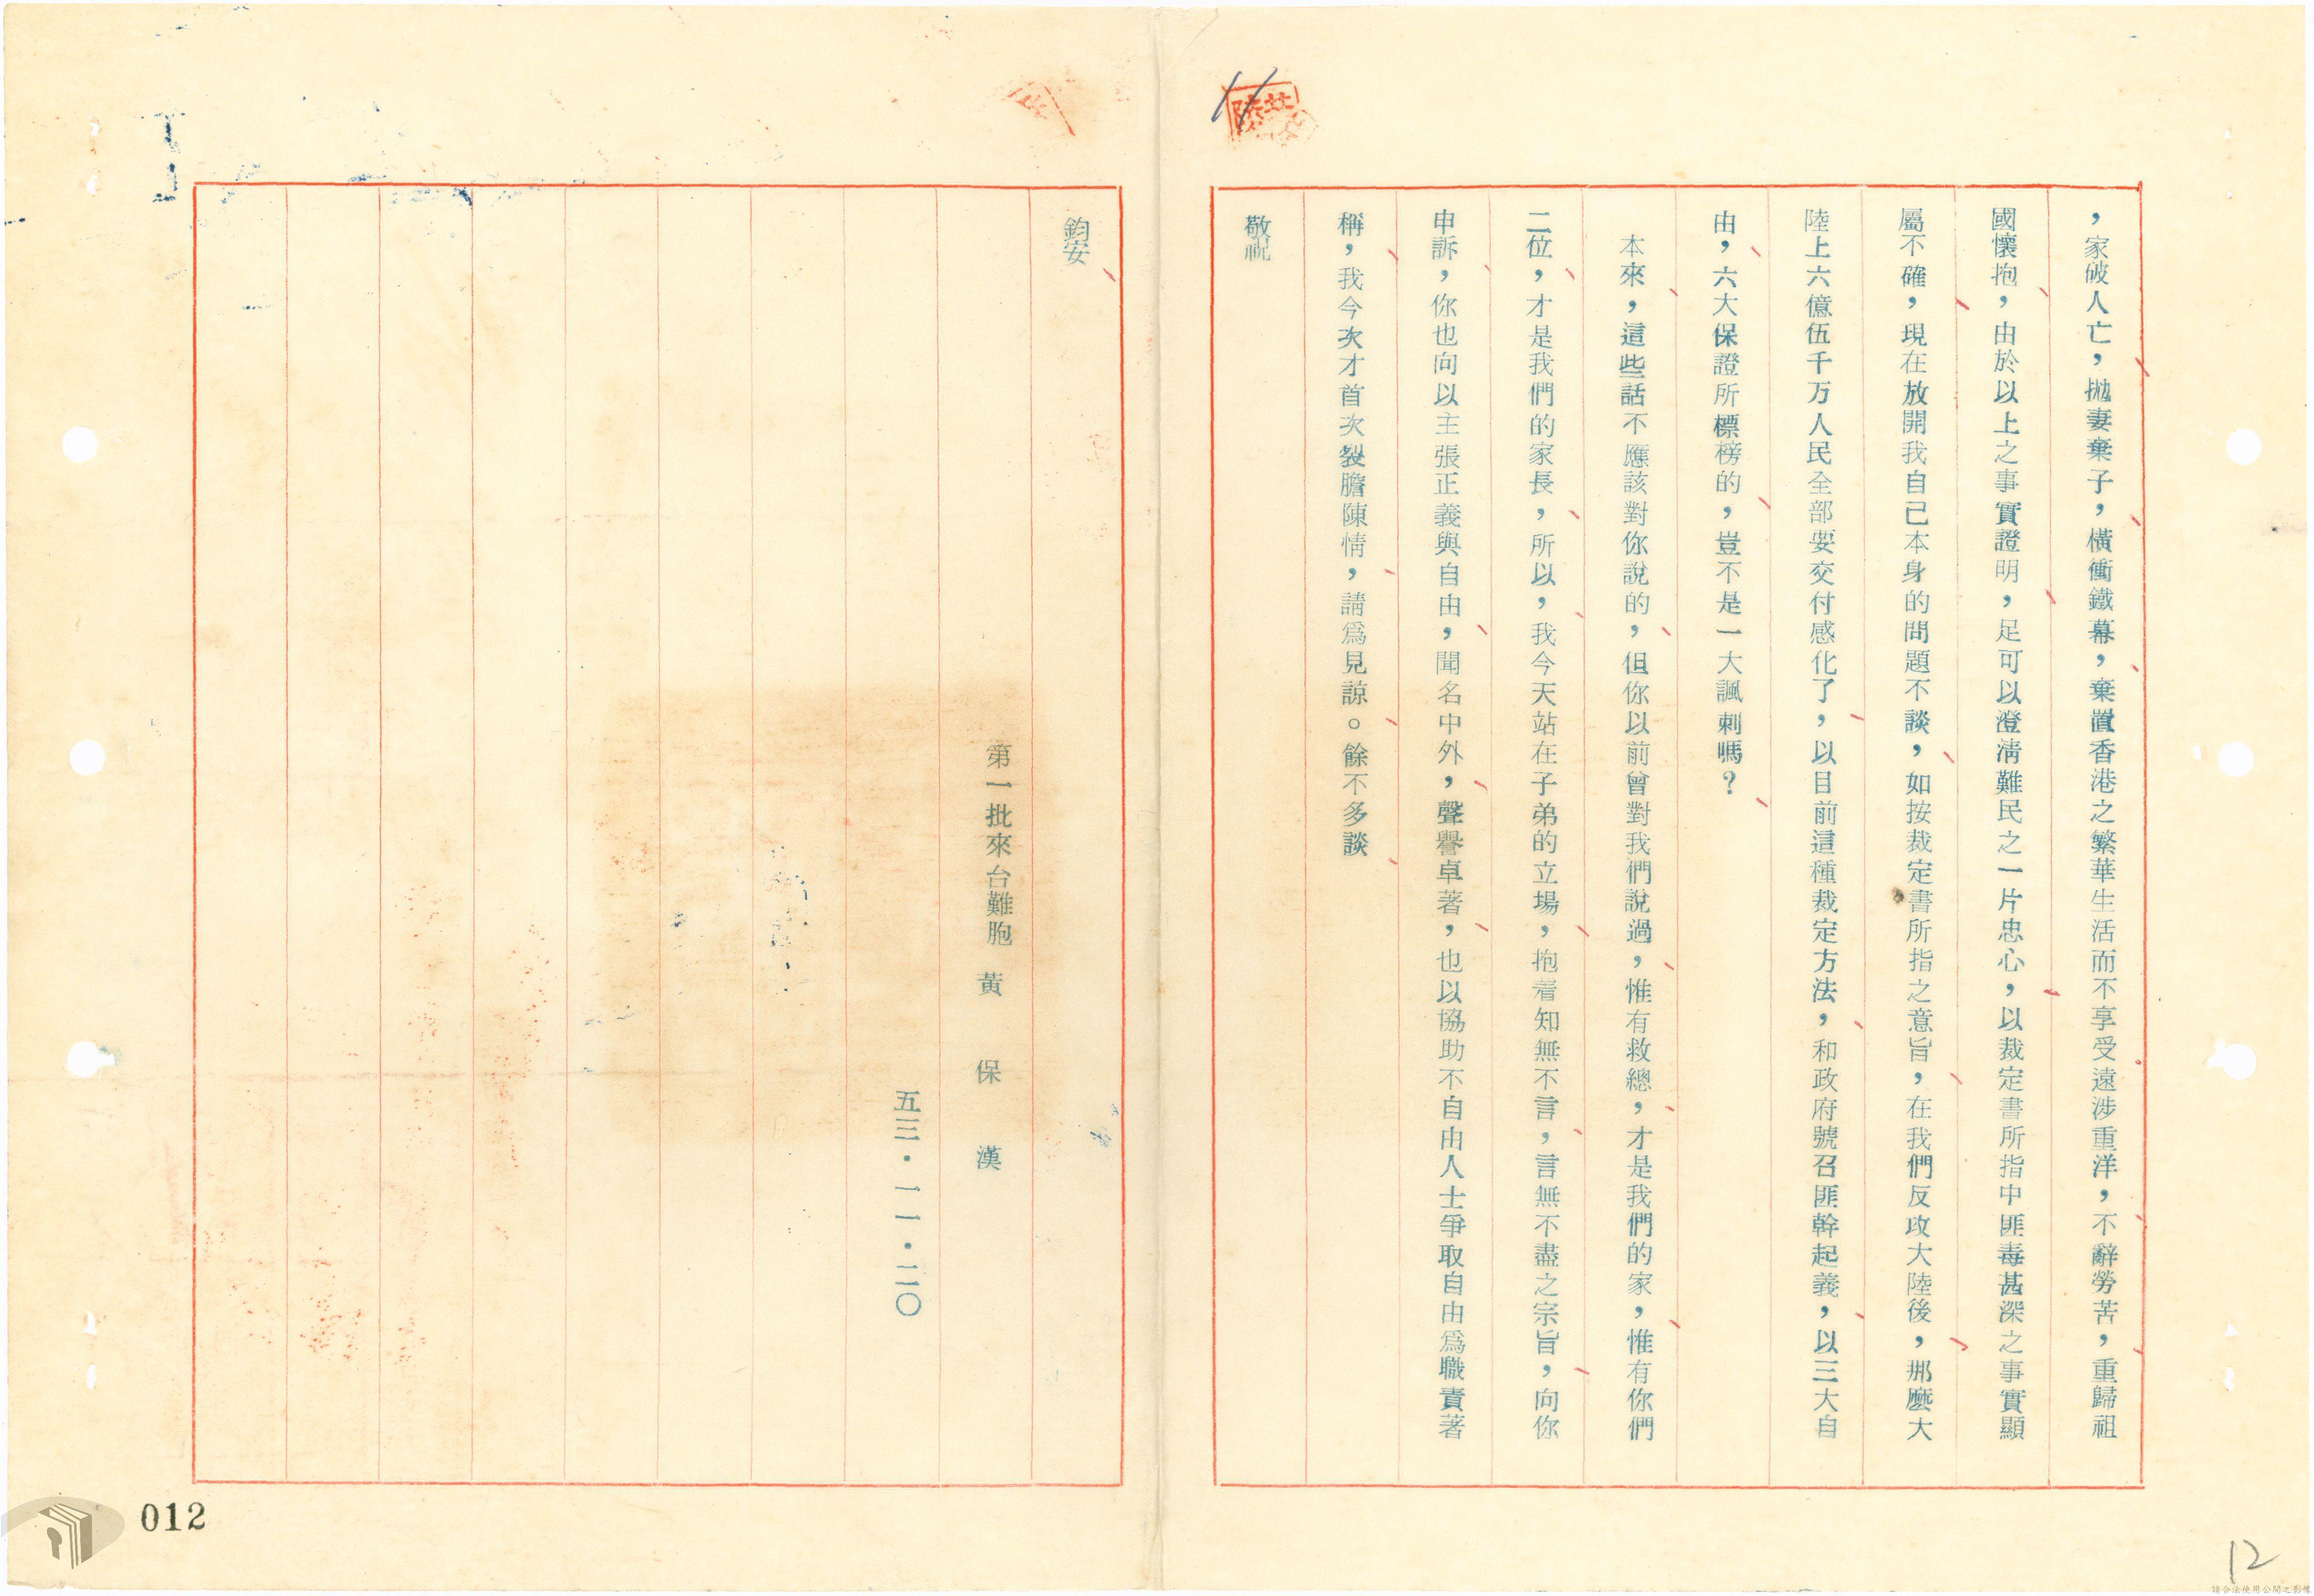 ，家破人亡，拋妻棄子，橫衝鐵幕，棄置香港之繁華生活而不享受遠涉重洋，不辭勞苦，重歸祖
國懷抱，由於以上之事實證明，足可以澄清難民之一片忠心，以裁定書所指中匪毒甚深之事實顯
屬不確，現在放開我自己本身的問題不談，如按裁定書所指之意旨，在我們反攻大陸後，那麼大
陸上六億伍千万人民全部要交付感化了，以目前這種裁定方法，和政府號召匪幹起義，以三大自
由，六大保證所標榜的，豈不是一大諷刺嗎？
本來，這些話不應該對你說的，但你以前曾對我們說過，惟有救總，才是我們的家，惟有你們
二位，才是我們的家長，所以，我今天站在子弟的立場，抱着知無不言，言無不盡之宗旨，向你
申訴，你也向以主張正義與自由，聞名中外，聲譽卓著，也以協助不自由人士爭取自由爲職責著
稱，我今次才首次裂膽陳情，請爲見諒。餘不多談
敬祝
鈞安
第一批來台難胞 黃保漢
五三·一一·二〇
11
012
12
請合法使用公開之影像